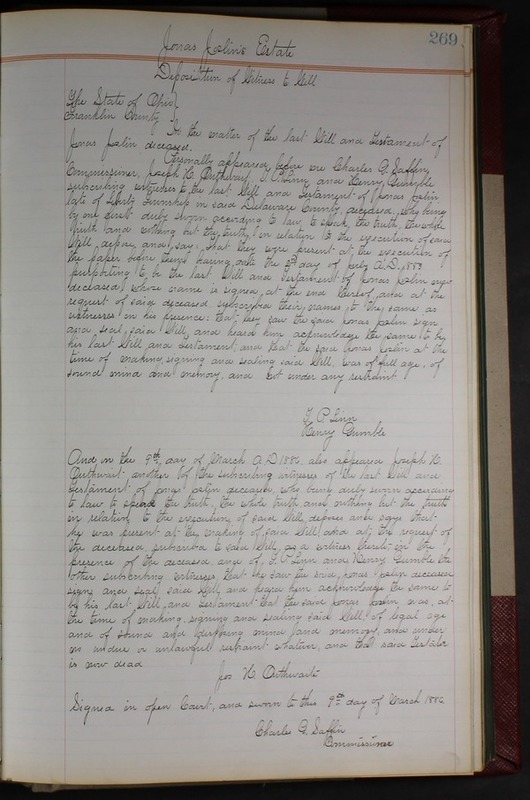 269
Jonas Joslin's Estate
Deposition of Witness to Will
The State of Ohio
Franklin County
In the matter of the last Will and Testament of
Jonas Joslin deceased.
Personally appeared before me Charles G. Saffin
Commissioner, Joseph H. Outhwait, T. P. Linn and Henry Gumble
subscribing witnesses to the last Will and Testament of Jonas Joslin
late of Liberty Township in said Delaware County, deceased, who being
by me first duly sworn according to law to speak the truth, the whole
truth and nothing but the truth, in relation to the execution of said
Will, depose and say: That they were present at the execution of
the paper before them, bearing date the day of A.D. 1883
purporting to be the last Will and Testament of Jonas Joslin now
deceased, whose name is signed at the end thereof and at the
request of said deceased subscribed their names to the same as
witnesses in his presence: that they saw the said Jonas Joslin sign
and seal said Will, and heard him acknowledge the same to be
his last Will and Testament, and that the said Jonas Joslin at the
time of making, signing and sealing said Will, was of full age, of
sound mind and memory, and not under any restraint.
T. P. Linn
Henry Gumble
And on the 9th day of March A.D. 1886. also appeared Joseph H.
Outhwait another of the subscribing witnesses of the last Will and
Testament of Jonas Joslin deceased, who being duly sworn according
to law to speak the truth, the whole truth and nothing but the truth
in relation to the execution of said Will, deposes and says that
he was present at the making of said Will and at the request of
the deceased, subscribed to said Will, as a witness thereto in the
presence of the deceased, and of T. P. Linn and Henry Gumble the
other subscribing witnesses, that he saw the said Jonas Joslin deceased
sign and seal said Will, and heard him acknowledge the same to
be his last Will and Testament that the said Jonas Joslin, was, at
the time of making, signing and sealing said Will, of legal age
and of sound and disposing mind and memory, and under
no undue or unlawful restraint whatever, and that said Testator
is now dead
Jos H. Outhwaite
Signed in open Court, and sworn to this 9th day of March 1886
Charles G. Saffin
Commissioner